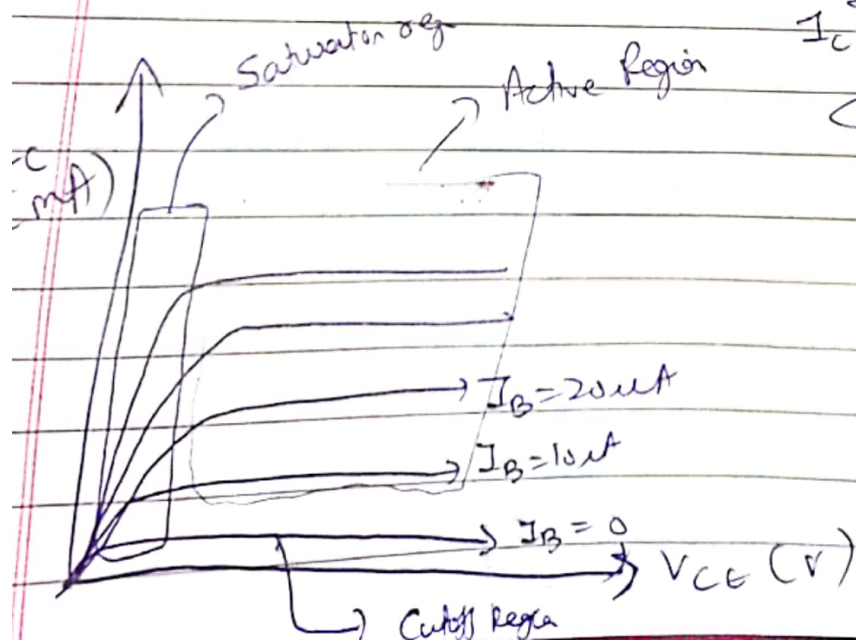 I_C
Saturation reg
Active Region
mA)
I_B=20uA
I_B=10uA
I_B=0
V_CE (V)
Cutoff Region